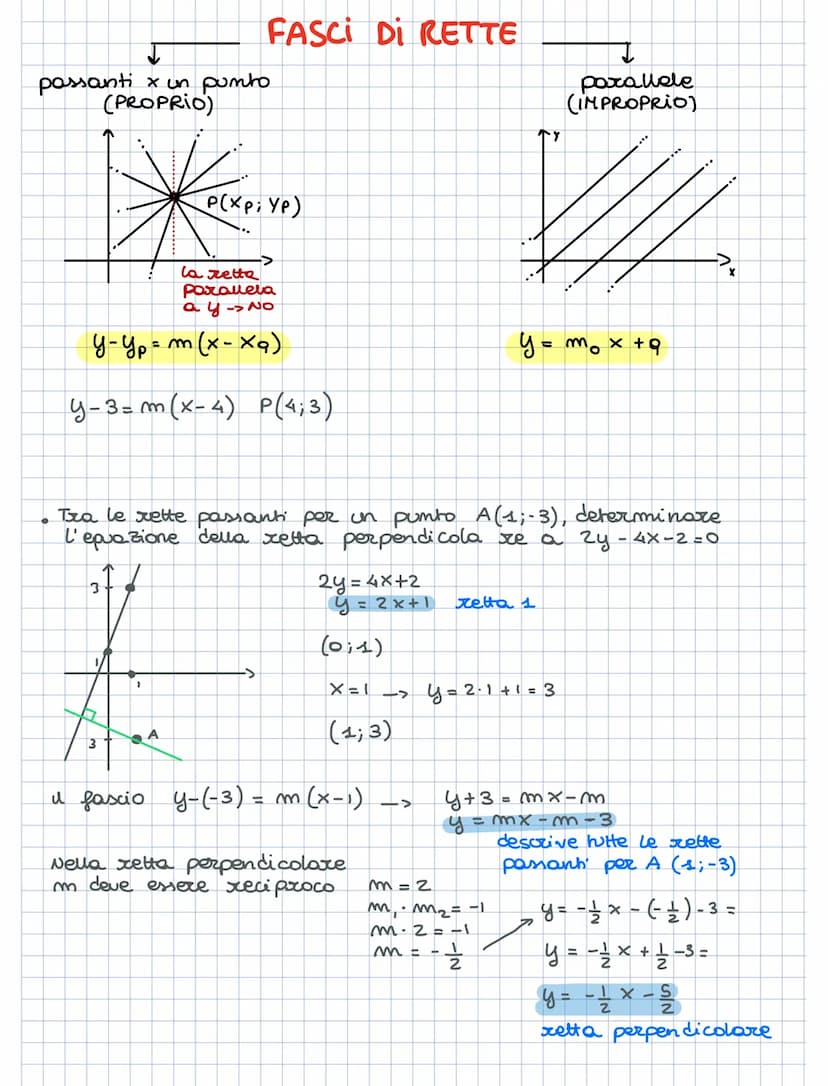 FASCi Di RETTE
passanti x un punto
(PROPRIO)
parallele
(IMPROPRIO)
P(xp; yp)
y
x
la retta
parallela
a y -> NO
y-yp = m (x - xq)
y = m₀ x + q
y-3 = m (x-4) P(4;3)
• Tra le rette passanti per un punto A(1;-3), determinare
l'equazione della retta perpendicola re a 2y - 4x - 2 = 0
3
1
1
A
3
2y = 4x+2
y = 2x+1 retta 1
(0;1)
x = 1 -> y = 2·1 + 1 = 3
(1;3)
il fascio y-(-3) = m (x-1) -> y+3 = mx-m
y = mx - m - 3
descrive tutte le rette
passanti per A (1;-3)
Nella retta perpendicolare
m deve essere reciproco
m = 2
m₁ · m₂ = -1
m · 2 = -1
m = - 1/2
y = - 1/2 x - (- 1/2) - 3 =
y = - 1/2 x + 1/2 - 3 =
y = - 1/2 x - 5/2
retta perpendicolare